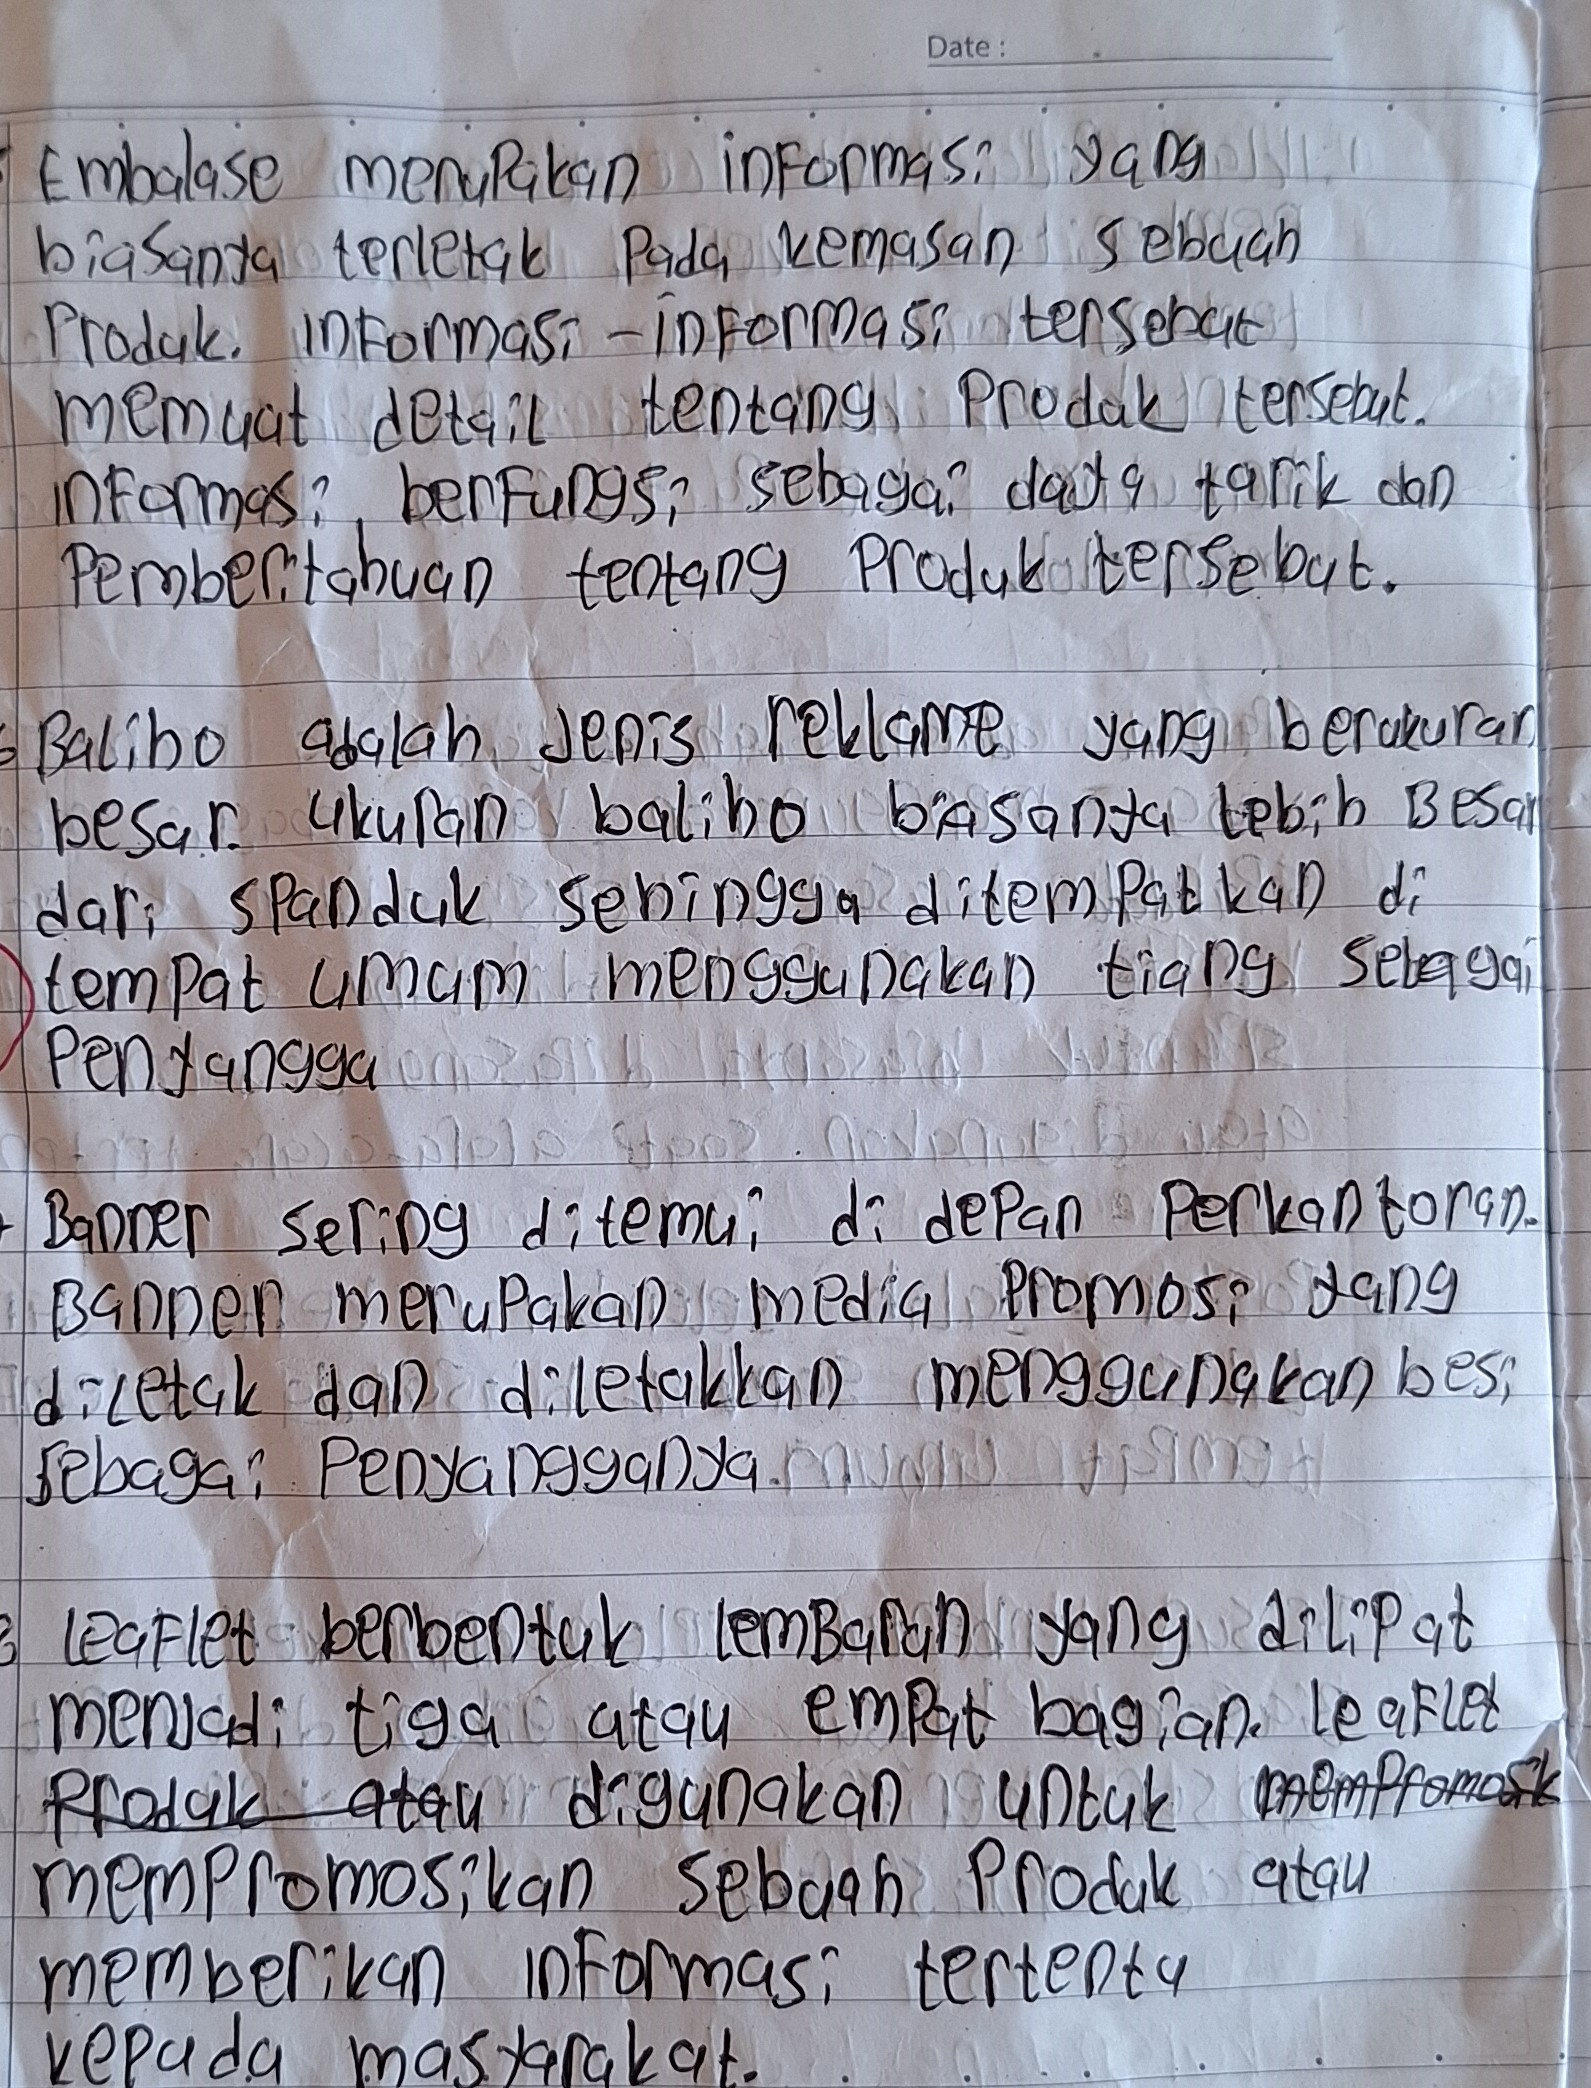 Date :
Embalase merupakan informasi yang
biasanya terletak pada kemasan sebuah
Produk. informasi-informasi tersebut
memuat detail tentang Produk tersebut.
informasi, berfungsi sebagai daya tarik dan
Pemberitahuan tentang Produk tersebut.
6 Baliho adalah Jenis reklame yang berukuran
besar. ukuran baliho biasanya lebih Besar
dari spanduk sehingga ditempatkan di
tempat umum menggunakan tiang sebagai
Penyangga
Banner sering ditemui di depan Perkantoran.
Banner merupakan media Promosi yang
diletak dan diletakkan menggunakan besi
sebagai Penyangganya.
8 Leaflet berbentuk lemBaran yang dilipat
menjadi tiga atau empat bagian. leaflet
Produk atau digunakan untuk mempromosik
mempromosikan sebuah Produk atau
memberikan informasi tertentu
kepada masyarakat.